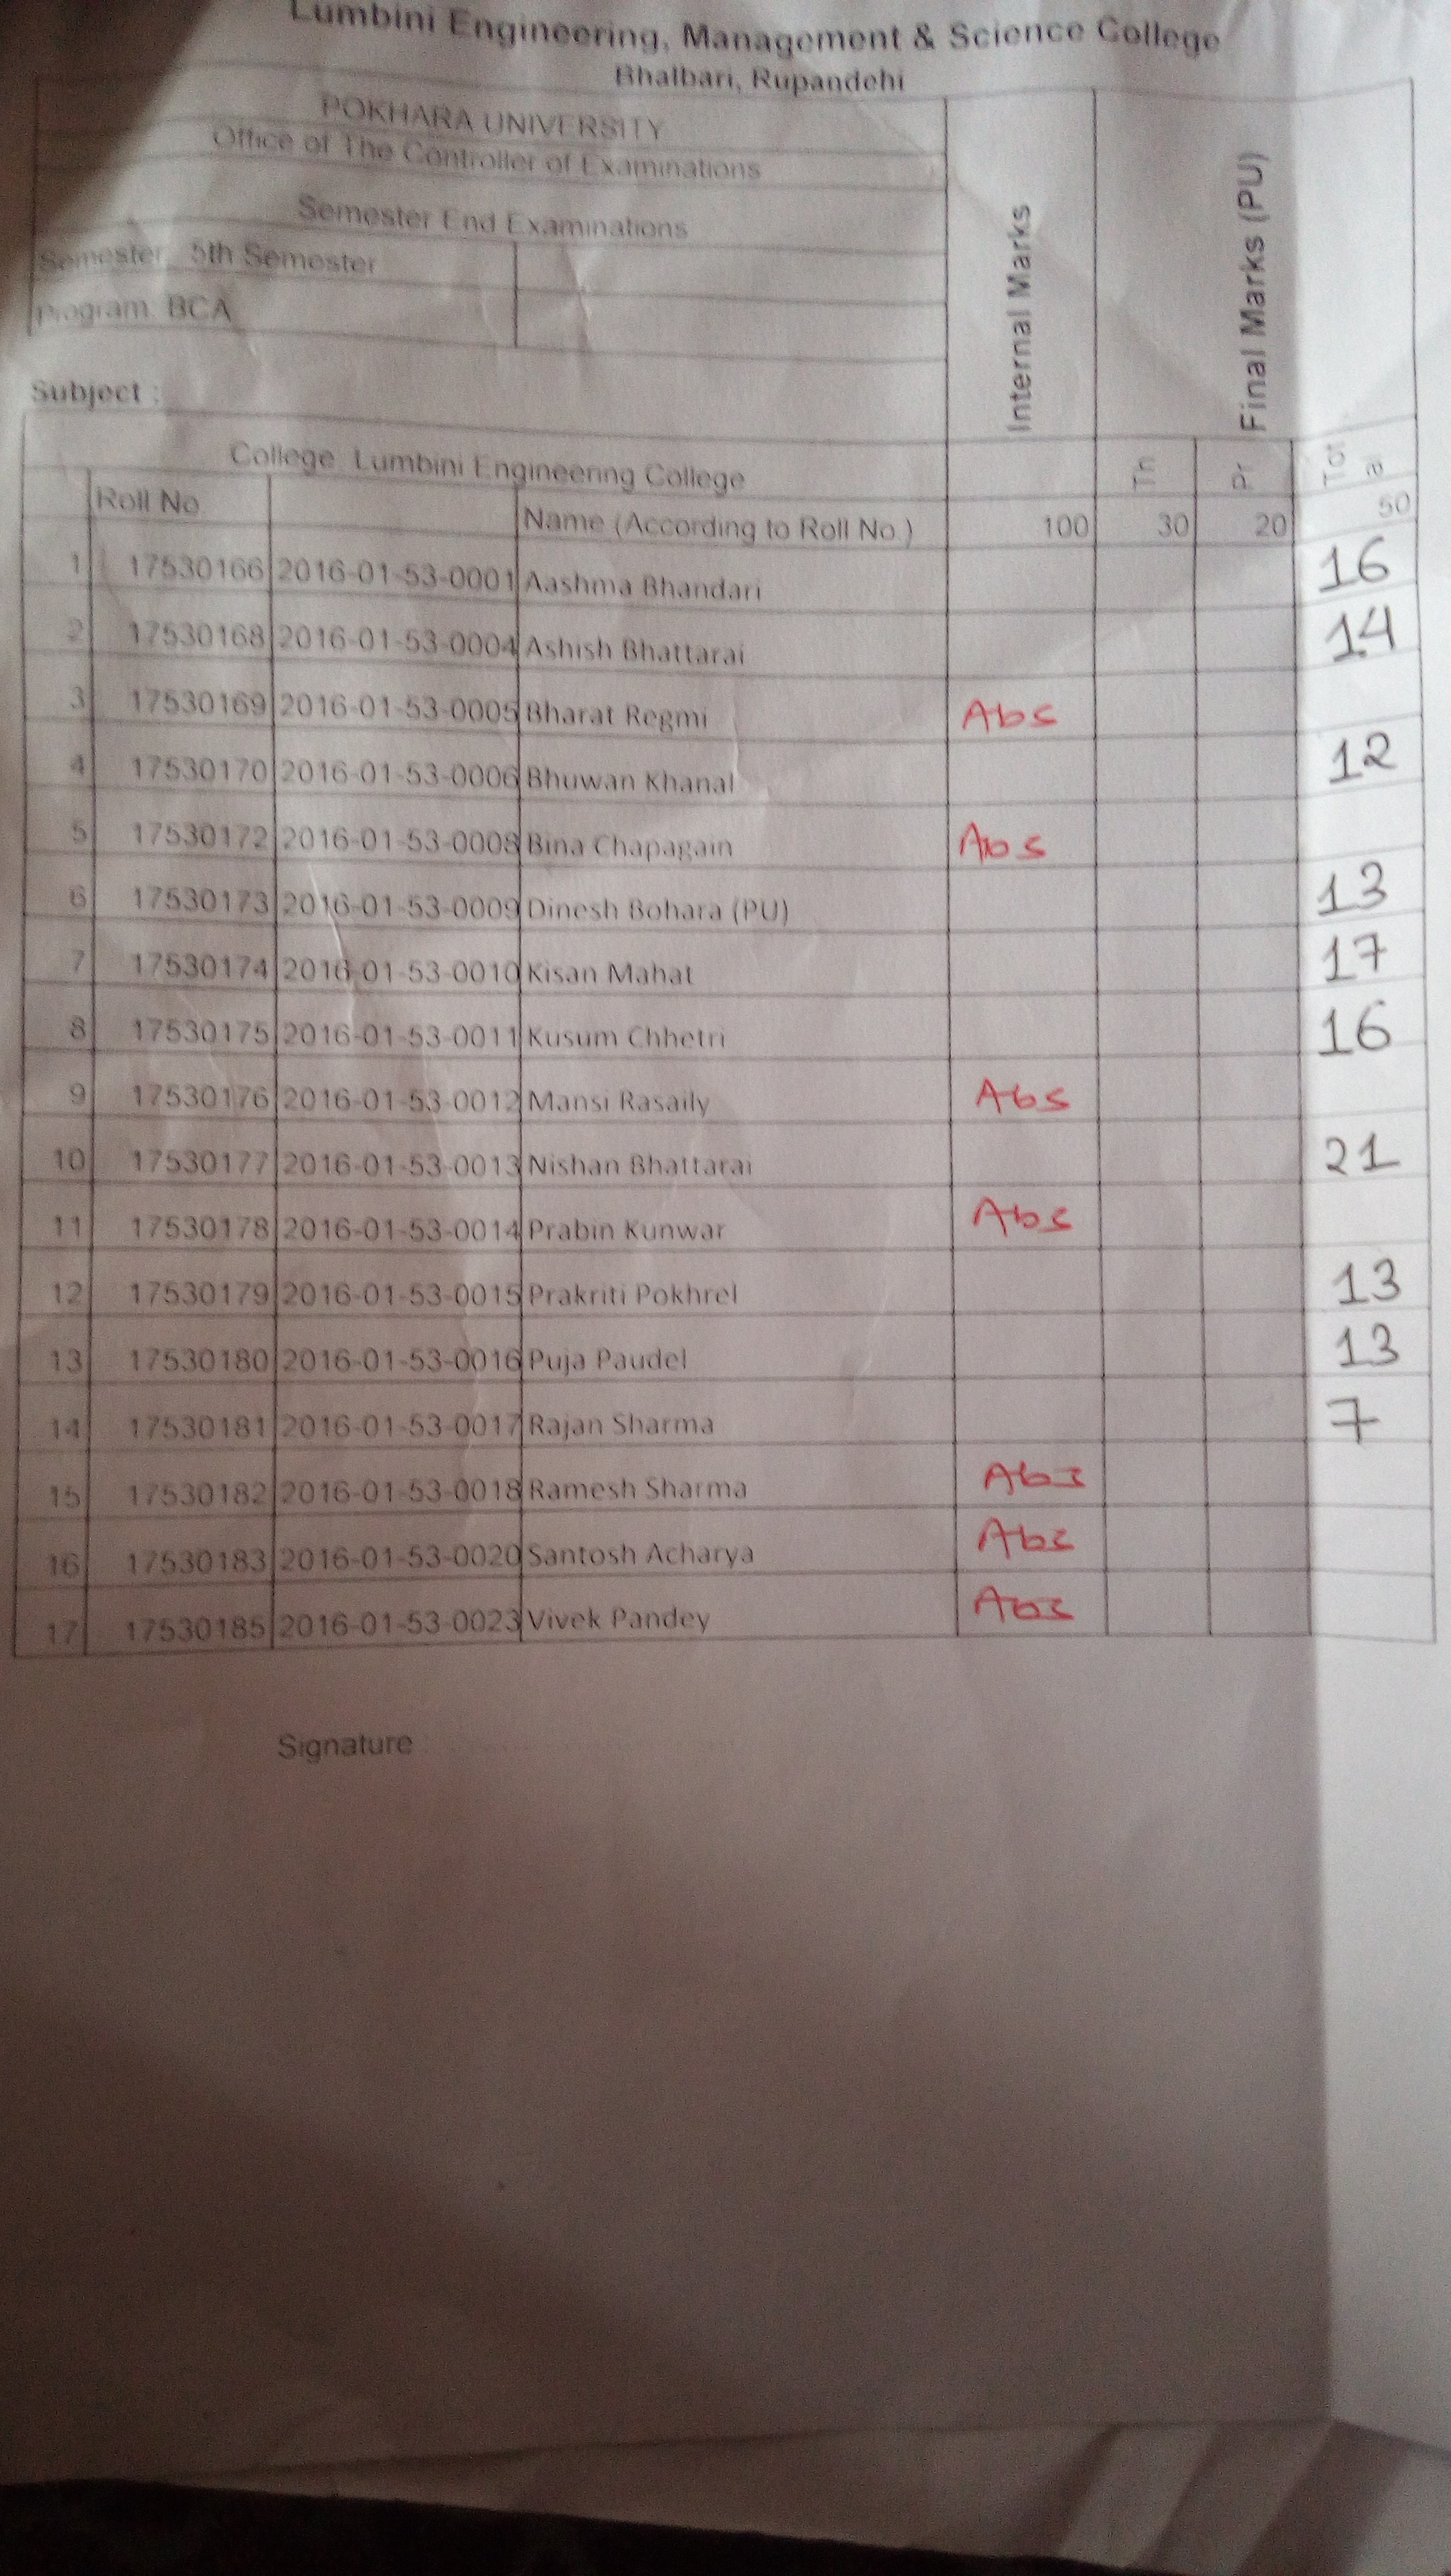 Lumbini Engineering, Management & Science College
Bhalbari, Rupandehi
POKHARA UNIVERSITY
Office of The Controller of Examinations
Semester End Examinations
Semester: 5th Semester
Program: BCA
Internal Marks
Final Marks (PU)
Subject :
College: Lumbini Engineering College Th Pr Total
Roll No. Name (According to Roll No.) 100 30 20 50
1 17530166 2016-01-53-0001 Aashma Bhandari 16
2 17530168 2016-01-53-0004 Ashish Bhattarai 14
3 17530169 2016-01-53-0005 Bharat Regmi Abs
4 17530170 2016-01-53-0006 Bhuwan Khanal 12
5 17530172 2016-01-53-0008 Bina Chapagain Abs
6 17530173 2016-01-53-0009 Dinesh Bohara (PU) 13
7 17530174 2016-01-53-0010 Kisan Mahat 17
8 17530175 2016-01-53-0011 Kusum Chhetri 16
9 17530176 2016-01-53-0012 Mansi Rasaily Abs
10 17530177 2016-01-53-0013 Nishan Bhattarai 21
11 17530178 2016-01-53-0014 Prabin Kunwar Abs
12 17530179 2016-01-53-0015 Prakriti Pokhrel 13
13 17530180 2016-01-53-0016 Puja Paudel 13
14 17530181 2016-01-53-0017 Rajan Sharma 7
15 17530182 2016-01-53-0018 Ramesh Sharma Abs
16 17530183 2016-01-53-0020 Santosh Acharya Abs
17 17530185 2016-01-53-0023 Vivek Pandey Abs
Signature